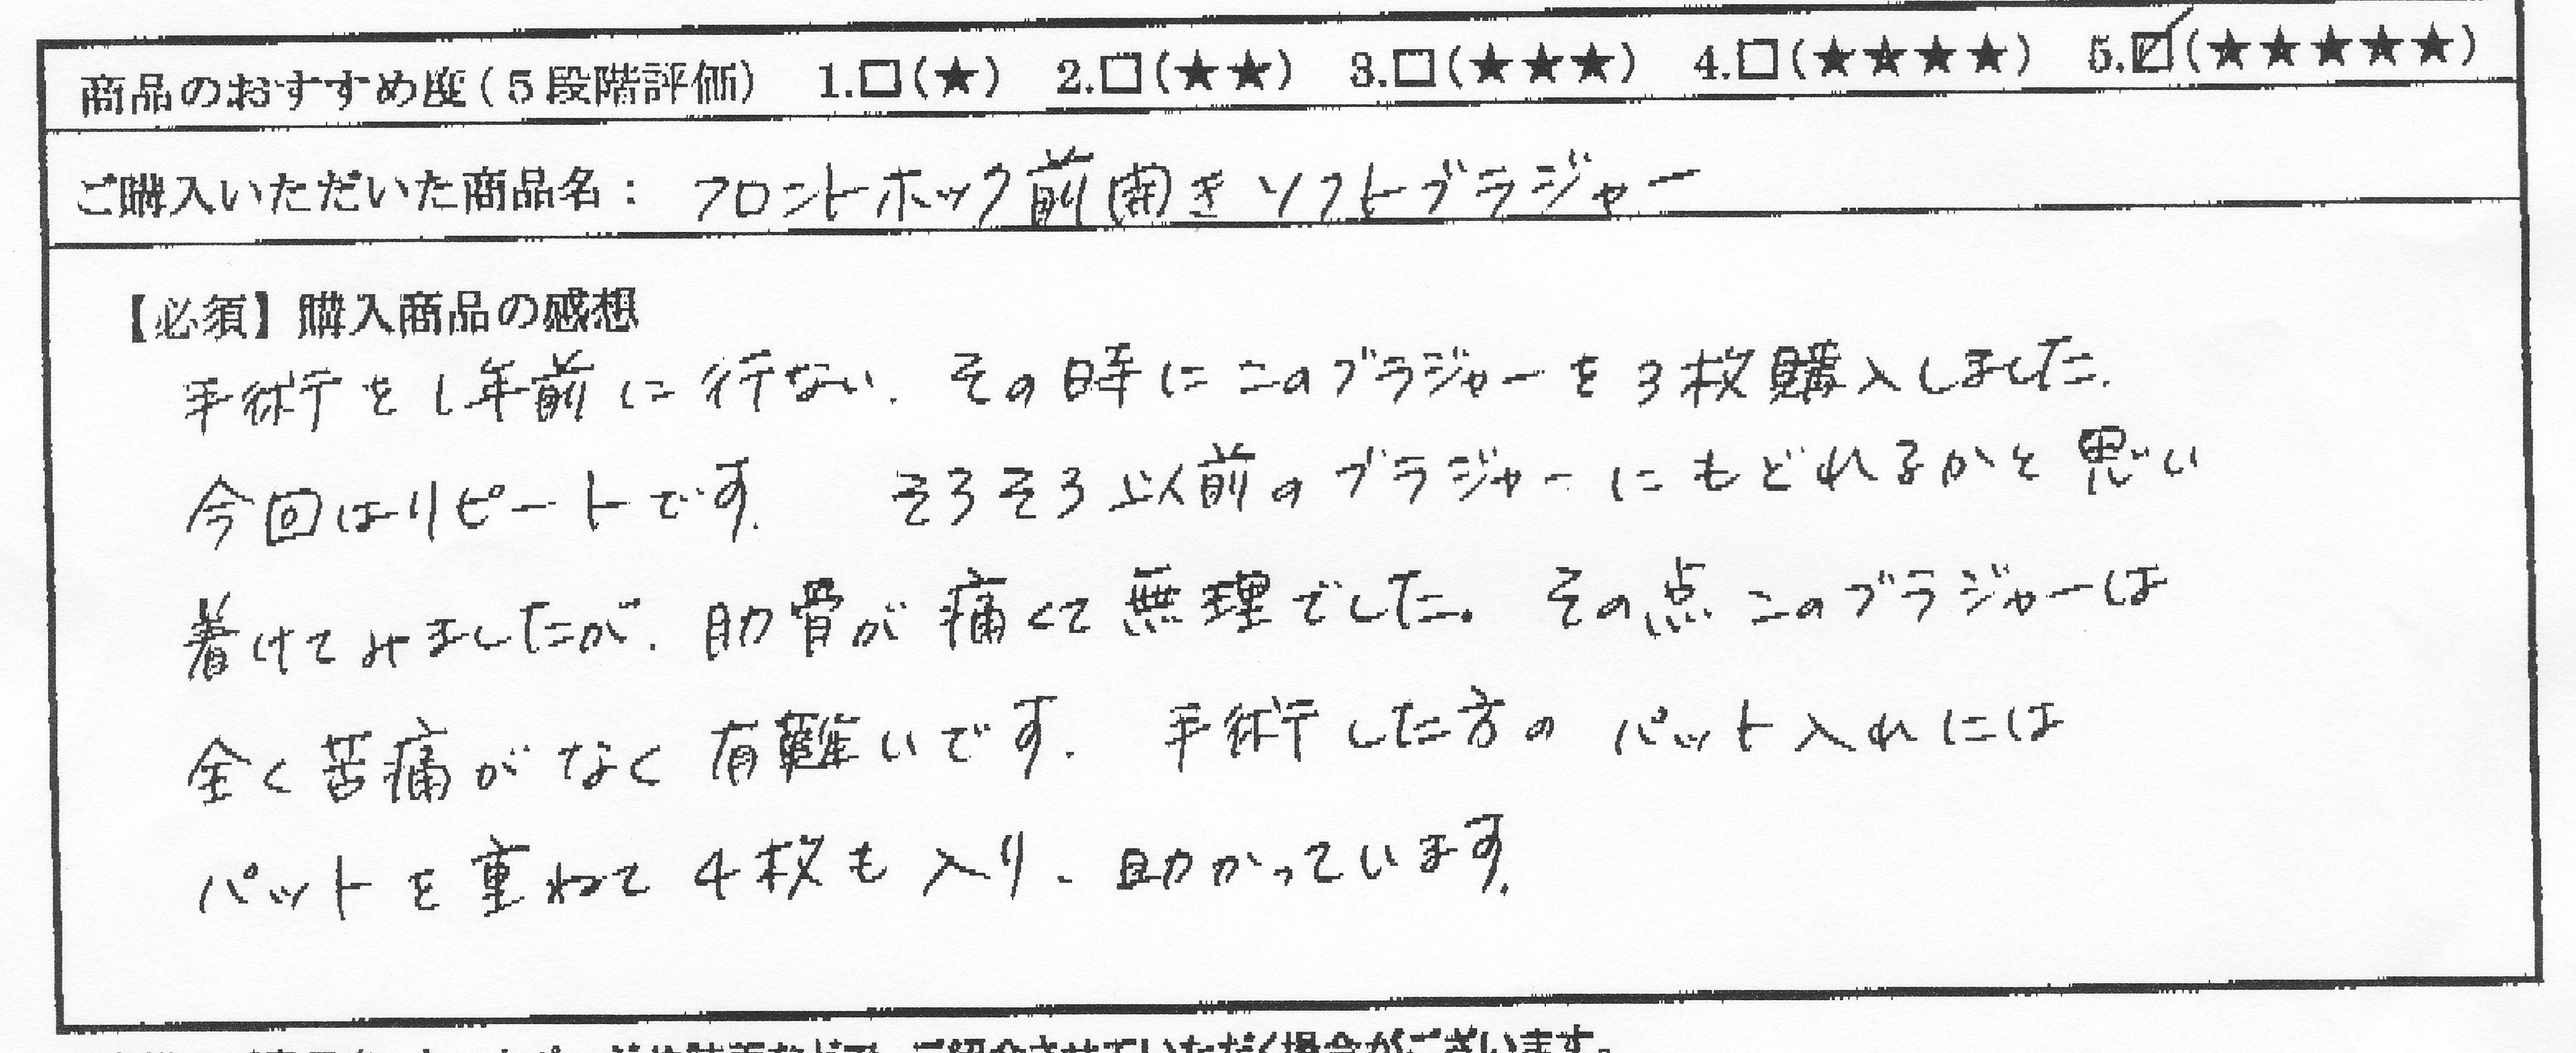 商品のおすすめ度(5段階評価) 1.□(★) 2.□(★★) 3.□(★★★) 4.□(★★★★) 5.☑(★★★★★)
ご購入いただいた商品名: フロントホック前開きソフトブラジャー
【必須】購入商品の感想
手術を1年前に行ない、その時にこのブラジャーを3枚購入しました。
今回はリピートです。 そろそろ以前のブラジャーにもどれるかと思い
着けてみましたが、肋骨が痛くて無理でした。その点このブラジャーは
全く苦痛がなく有難いです。 手術した方のパット入れには
パットを重ねて4枚も入り、助かっています。
ご紹介させていただく場合がございます。